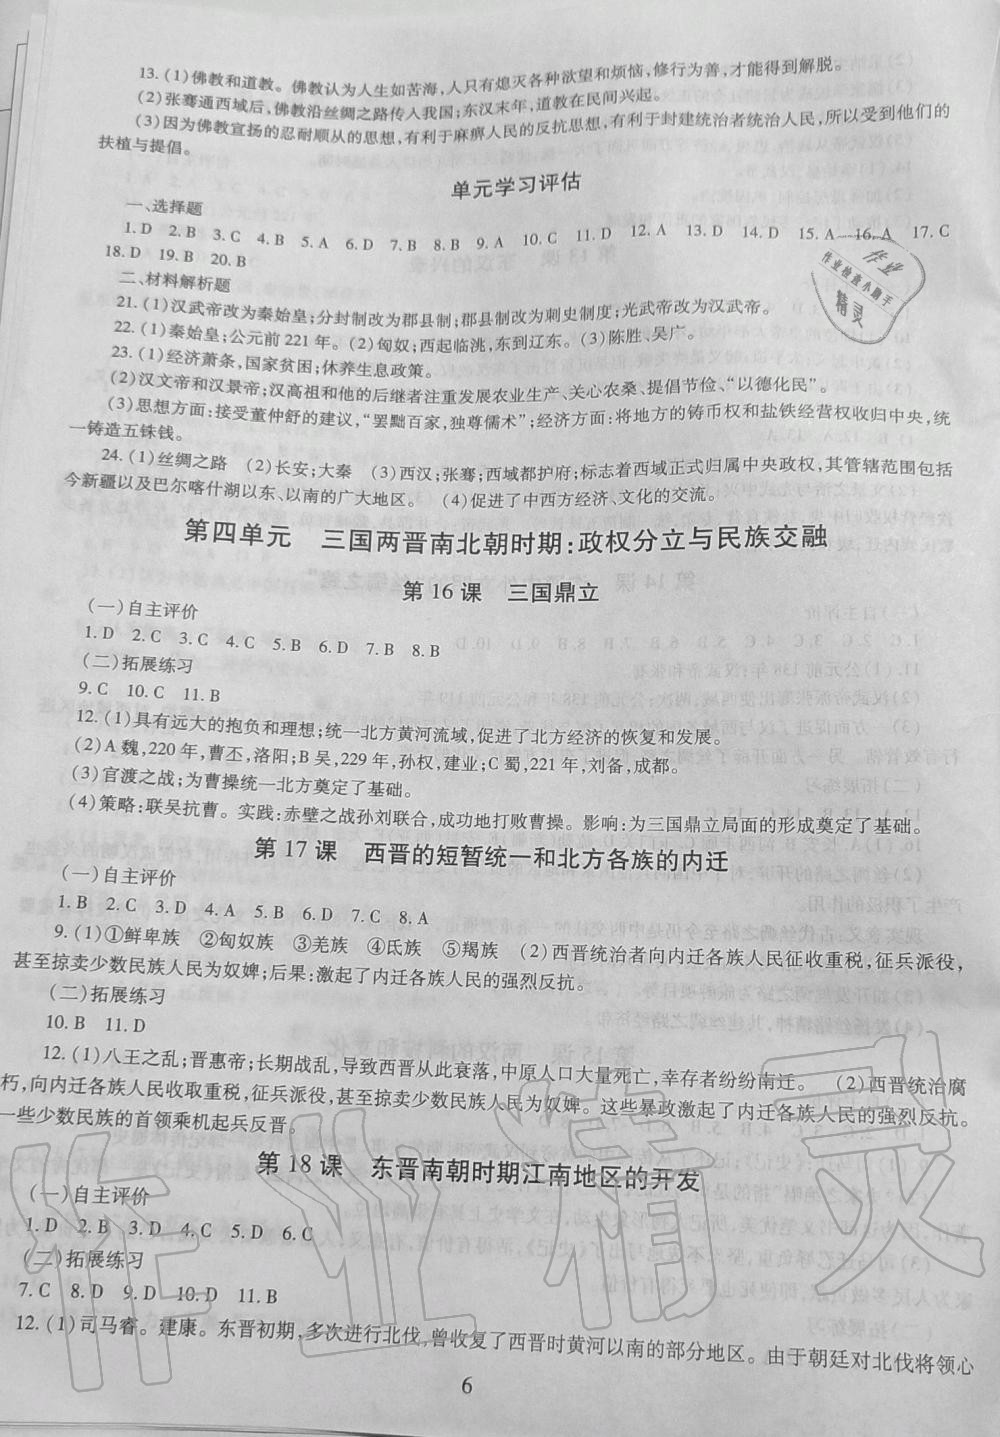 13. (1)佛教和道教。佛教认为人生如苦海,人只有熄灭各种欲望和烦恼,修行为善,才能得到解脱。
(2)张骞通西域后,佛教沿丝绸之路传入我国;东汉末年,道教在民间兴起。
(3)因为佛教宣扬的忍耐顺从的思想,有利于麻痹人民的反抗思想,有利于封建统治者统治人民,所以受到他们的
扶植与提倡。
单元学习评估
一、选择题
1. D 2. B 3. C 4. C 5. A 6. D 7. B 8. B 9. A 10. C 11. D 12. A 13. D 14. D 15. A 16. A 17. C
18. D 19. B 20. B
二、材料解析题
21. (1)汉武帝改为秦始皇;分封制改为郡县制;郡县制改为刺史制度;光武帝改为汉武帝。
22. (1)秦始皇;公元前 221 年。(2)匈奴;西起临洮,东到辽东。(3)陈胜、吴广。
23. (1)经济萧条,国家贫困;休养生息政策。
(2)汉文帝和汉景帝;汉高祖和他的后继者注重发展农业生产、关心农桑、提倡节俭、“以德化民”。
(3)思想方面:接受董仲舒的建议,“罢黜百家,独尊儒术”;经济方面:将地方的铸币权和盐铁经营权收归中央,统
一铸造五铢钱。
24. (1)丝绸之路 (2)长安;大秦 (3)西汉;张骞;西域都护府;标志着西域正式归属中央政权,其管辖范围包括
今新疆以及巴尔喀什湖以东、以南的广大地区。 (4)促进了中西方经济、文化的交流。
第四单元 三国两晋南北朝时期:政权分立与民族交融
第 16 课 三国鼎立
(一)自主评价
1. D 2. C 3. C 4. C 5. B 6. D 7. B 8. B
(二)拓展练习
9. C 10. C 11. B
12. (1)具有远大的抱负和理想;统一北方黄河流域,促进了北方经济的恢复和发展。
(2)A 魏,220 年,曹丕,洛阳;B 吴,229 年,孙权,建业;C 蜀,221 年,刘备,成都。
(3)官渡之战;为曹操统一北方奠定了基础。
(4)策略:联吴抗曹。实践:赤壁之战孙刘联合,成功地打败曹操。影响:为三国鼎立局面的形成奠定了基础。
第 17 课 西晋的短暂统一和北方各族的内迁
(一)自主评价
1. B 2. C 3. D 4. A 5. B 6. D 7. C 8. A
9. (1)①鲜卑族 ②匈奴族 ③羌族 ④氐族 ⑤羯族 (2)西晋统治者向内迁各族人民征收重税,征兵派役,
甚至掠卖少数民族人民为奴婢;后果:激起了内迁各族人民的强烈反抗。
(二)拓展练习
10. B 11. D
12. (1)八王之乱;晋惠帝;长期战乱,导致西晋从此衰落,中原人口大量死亡,幸存者纷纷南迁。 (2)西晋统治腐
朽,向内迁各族人民收取重税,征兵派役,甚至掠卖少数民族人民为奴婢。这些暴政激起了内迁各族人民的强烈反抗。
一些少数民族的首领乘机起兵反晋。
第 18 课 东晋南朝时期江南地区的开发
(一)自主评价
1. D 2. B 3. D 4. C 5. D 6. C
(二)拓展练习
7. C 8. D 9. D 10. D 11. B
12. (1)司马睿。建康。东晋初期,多次进行北伐,曾收复了西晋时黄河以南的部分地区。由于朝廷对北伐将领心
6
作业
作业检查小助手
精灵
作业精灵